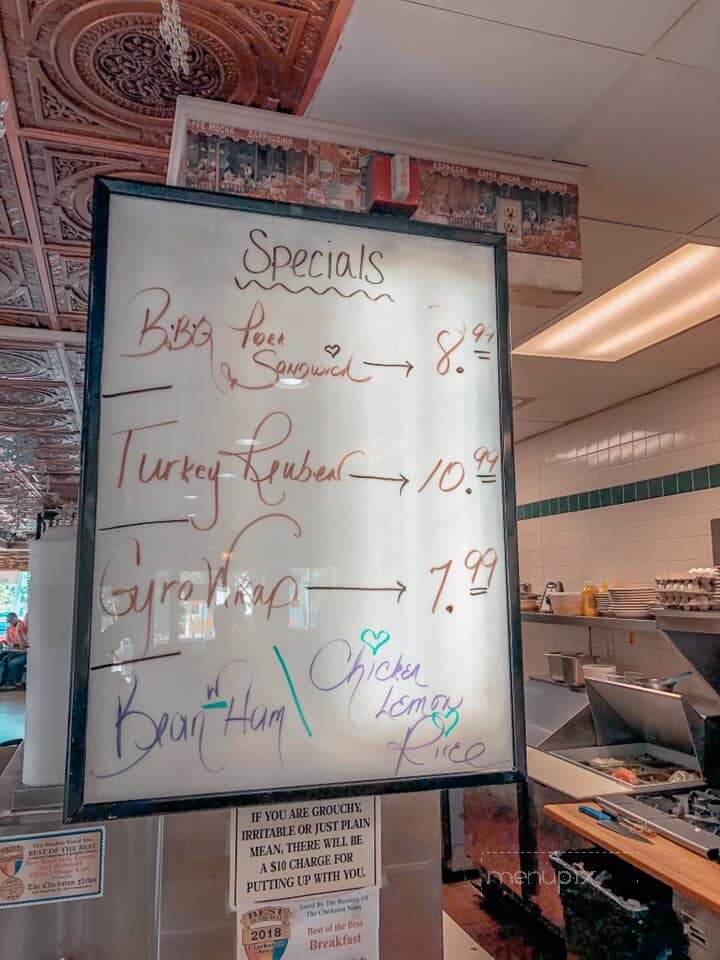 CAFE MOCHA CAPPUCCINO
ESPRESSO CAFFE MOCHA CAPPUCCINO
Specials
B.B.Q Pork
& Sandwich → 8.99
Turkey Reuben → 10.99
Gyro Wrap → 7.99
Bean w Ham \ Chicken
Lemon
Rice
IF YOU ARE GROUCHY,
IRRITABLE OR JUST PLAIN
MEAN, THERE WILL BE
A $10 CHARGE FOR
PUTTING UP WITH YOU.
BEST OF THE BEST
The Clarkston News
Voted By The Readers Of
The Clarkston News
BEST
2018
Clarkston
Area
Best of the Best
Breakfast
menupix